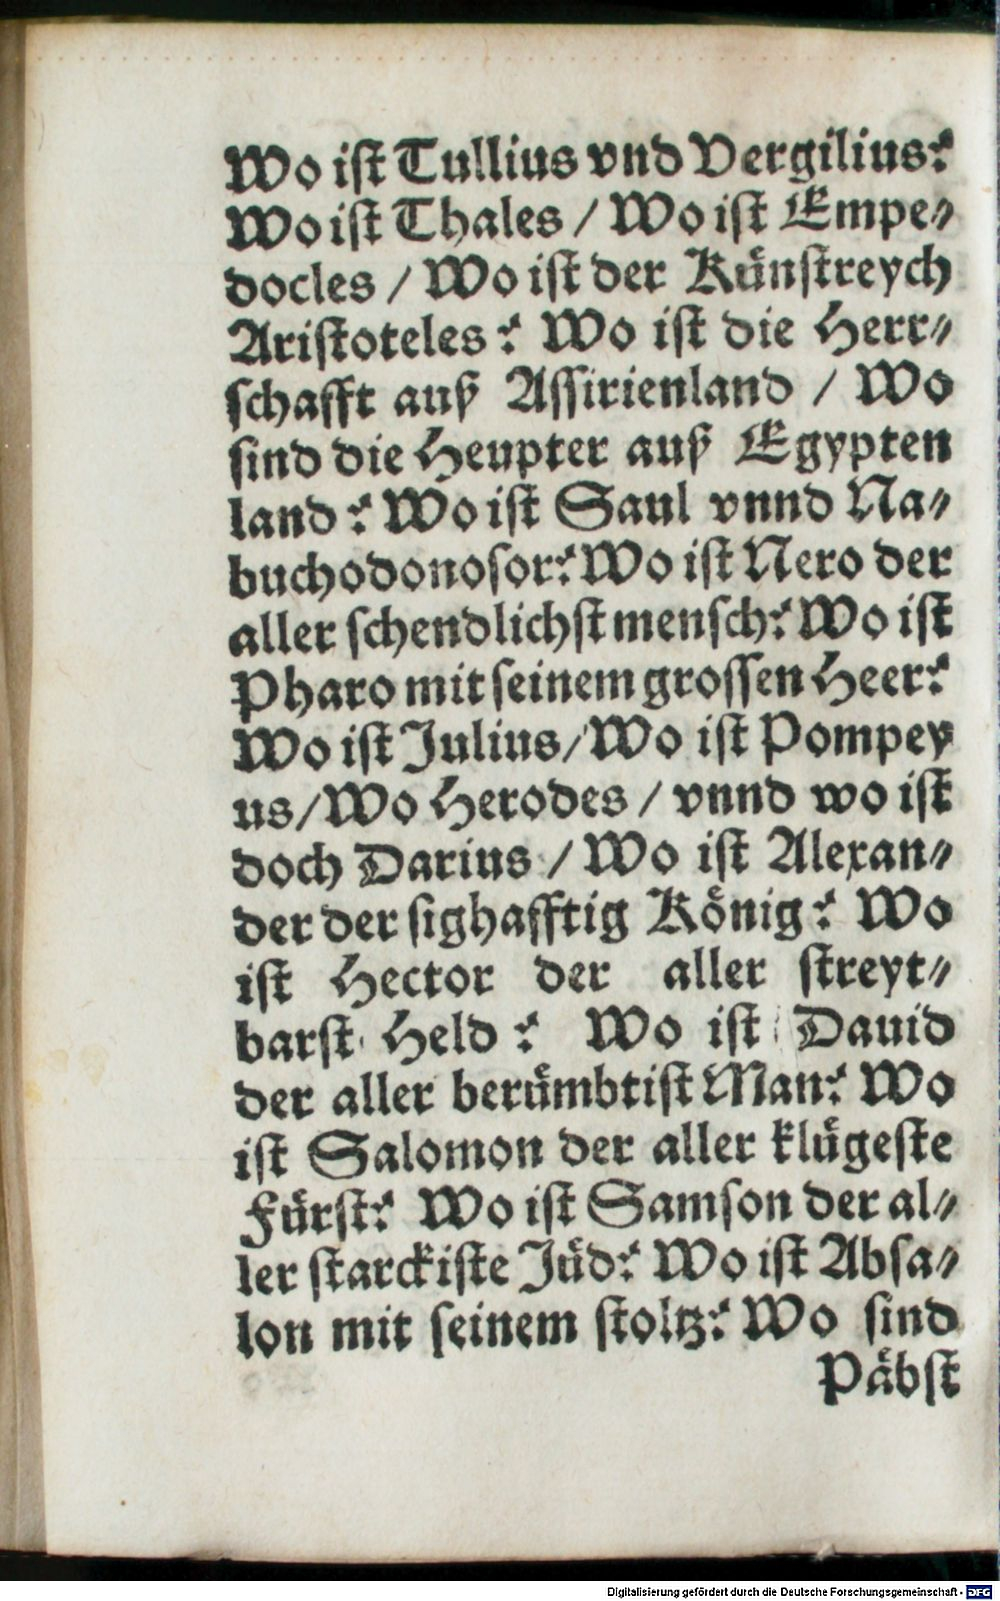 Wo ist Tullius vnd Vergilius?
Wo ist Thales / Wo ist Empe⸗
docles / Wo ist der Künstreych
Aristoteles? Wo ist die Herr⸗
schafft auß Assirienland / Wo
sind die Heupter auß Egypten
land? Wo ist Saul vnnd Na⸗
buchodonosor? Wo ist Nero der
aller schendlichst mensch? Wo ist
Pharo mit seinem grossen Heer?
Wo ist Julius / Wo ist Pompey
us / Wo Herodes / vnnd wo ist
doch Darius / Wo ist Alexan⸗
der der sighafftig König? Wo
ist Hector der aller streyt⸗
barst Held? Wo ist Dauid
der aller berümbtist Man? Wo
ist Salomon der aller klügeste
Fürst? Wo ist Samson der al⸗
ler starckiste Jüd? Wo ist Absa⸗
lon mit seinem stoltz? Wo sind
Päbst
Digitalisierung gefördert durch die Deutsche Forschungsgemeinschaft - DFG